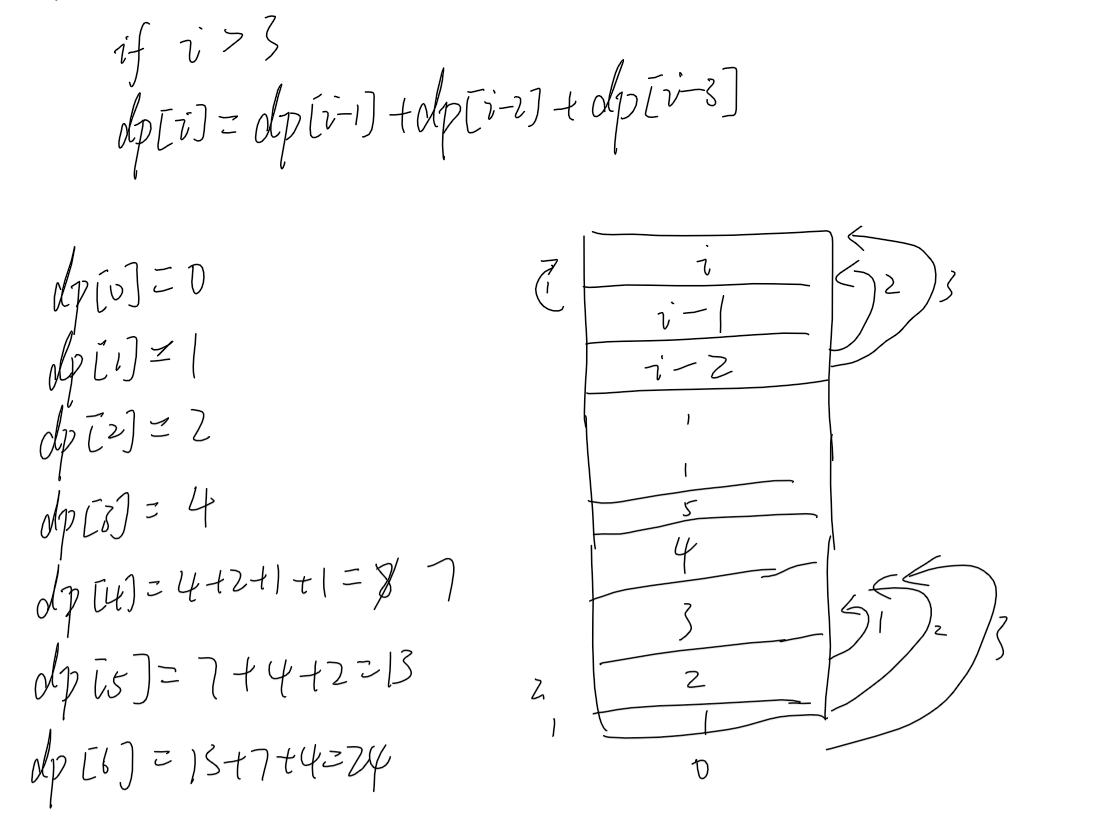 if i > 3
dp[i] = dp[i-1] + dp[i-2] + dp[i-3]
dp[0] = 0
dp[1] = 1
dp[2] = 2
dp[3] = 4
dp[4] = 4+2+1+1 = 8 7
dp[5] = 7+4+2=13
dp[6] = 13+7+4=24
i
1
2
3
i-1
i-2
5
4
3
1
2
3
2
2
1
1
0